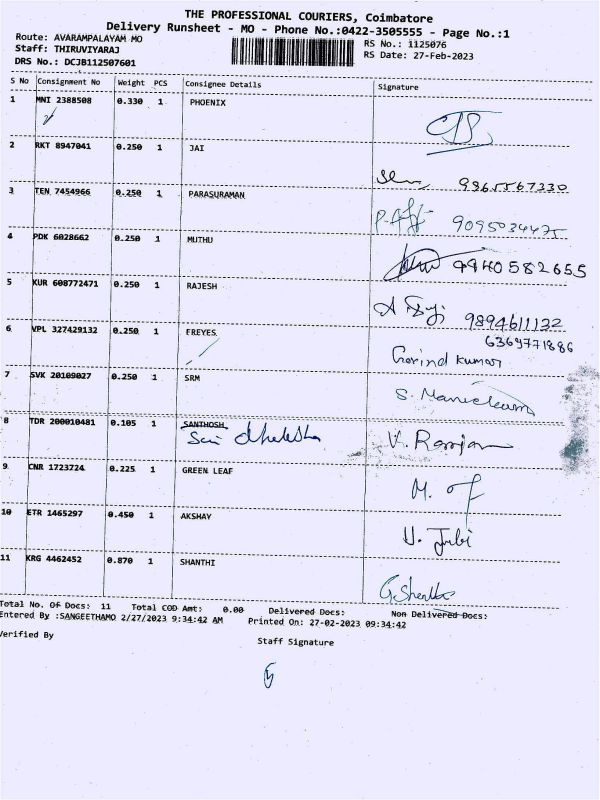 THE PROFESSIONAL COURIERS, Coimbatore
Delivery Runsheet - MO - Phone No.:0422-3505555 - Page No.:1
Route: AVARAMPALAYAM MO
RS No.: 1125076
Staff: THIRUVIYARAJ
RS Date: 27-Feb-2023
DRS No.: DCJB112507601
S No Consignment No Weight PCS Consignee Details Signature
1 MNI 2388508 0.330 1 PHOENIX
2 RKT 8947041 0.250 1 JAI
3 TEN 7454966 0.250 1 PARASURAMAN
9095034475
4 PDK 6028662 0.250 1 MUTHU
9940582655
5 KUR 608772471 0.250 1 RAJESH
9894611132
6 VPL 327429132 0.250 1 FREYES
6369771886
Govind Kumar
7 SVK 20109027 0.250 1 SRM
S. Manickam
8 TDR 200010481 0.105 1 SANTHOSH
Sai
9 CNR 1723724 0.225 1 GREEN LEAF
10 ETR 1465297 0.450 1 AKSHAY
11 KRG 4462452 0.870 1 SHANTHI
Total No. Of Docs: 11 Total COD Amt: 0.00 Delivered Docs: Non Delivered Docs:
Entered By :SANGEETHAMO 2/27/2023 9:34:42 AM Printed On: 27-02-2023 09:34:42
Verified By
Staff Signature